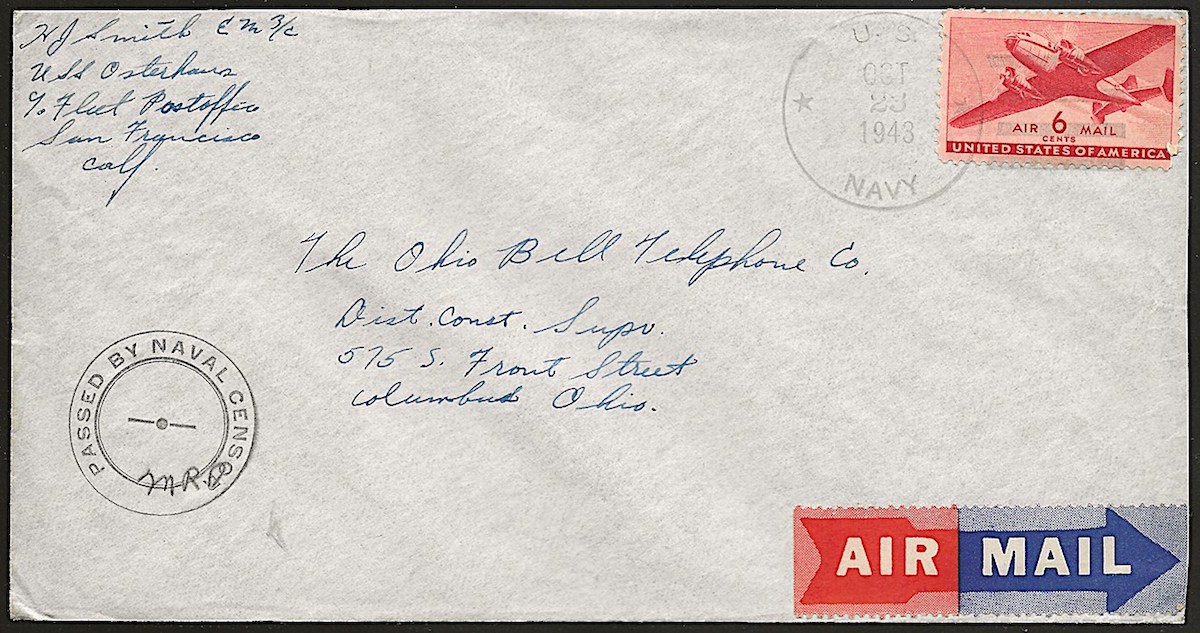 H J Smith E M 3/c
USS Osterhaus
% Fleet Postoffice
San Francisco
Calf.
U. S.
OCT
23
1943
NAVY
AIR 6 MAIL
CENTS
UNITED STATES OF AMERICA
The Ohio Bell Telephone Co.
Dist. Const. Supv.
575 S. Front Street
Columbus Ohio.
PASSED BY NAVAL CENSO
M.R.D
AIR MAIL